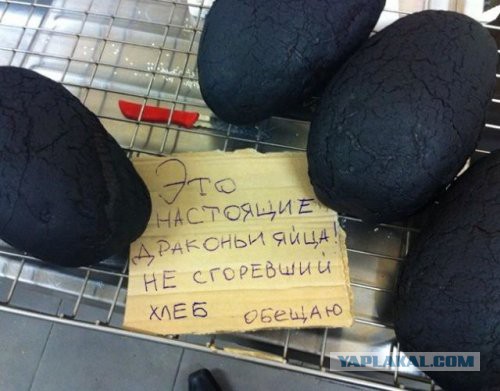 Это
НАСТОЯЩИЕ
ДРАКОНЬИ ЯЙЦА!
НЕ СГОРЕВШИЙ
ХЛЕБ ОБЕЩАЮ
YAPLAKAL.COM